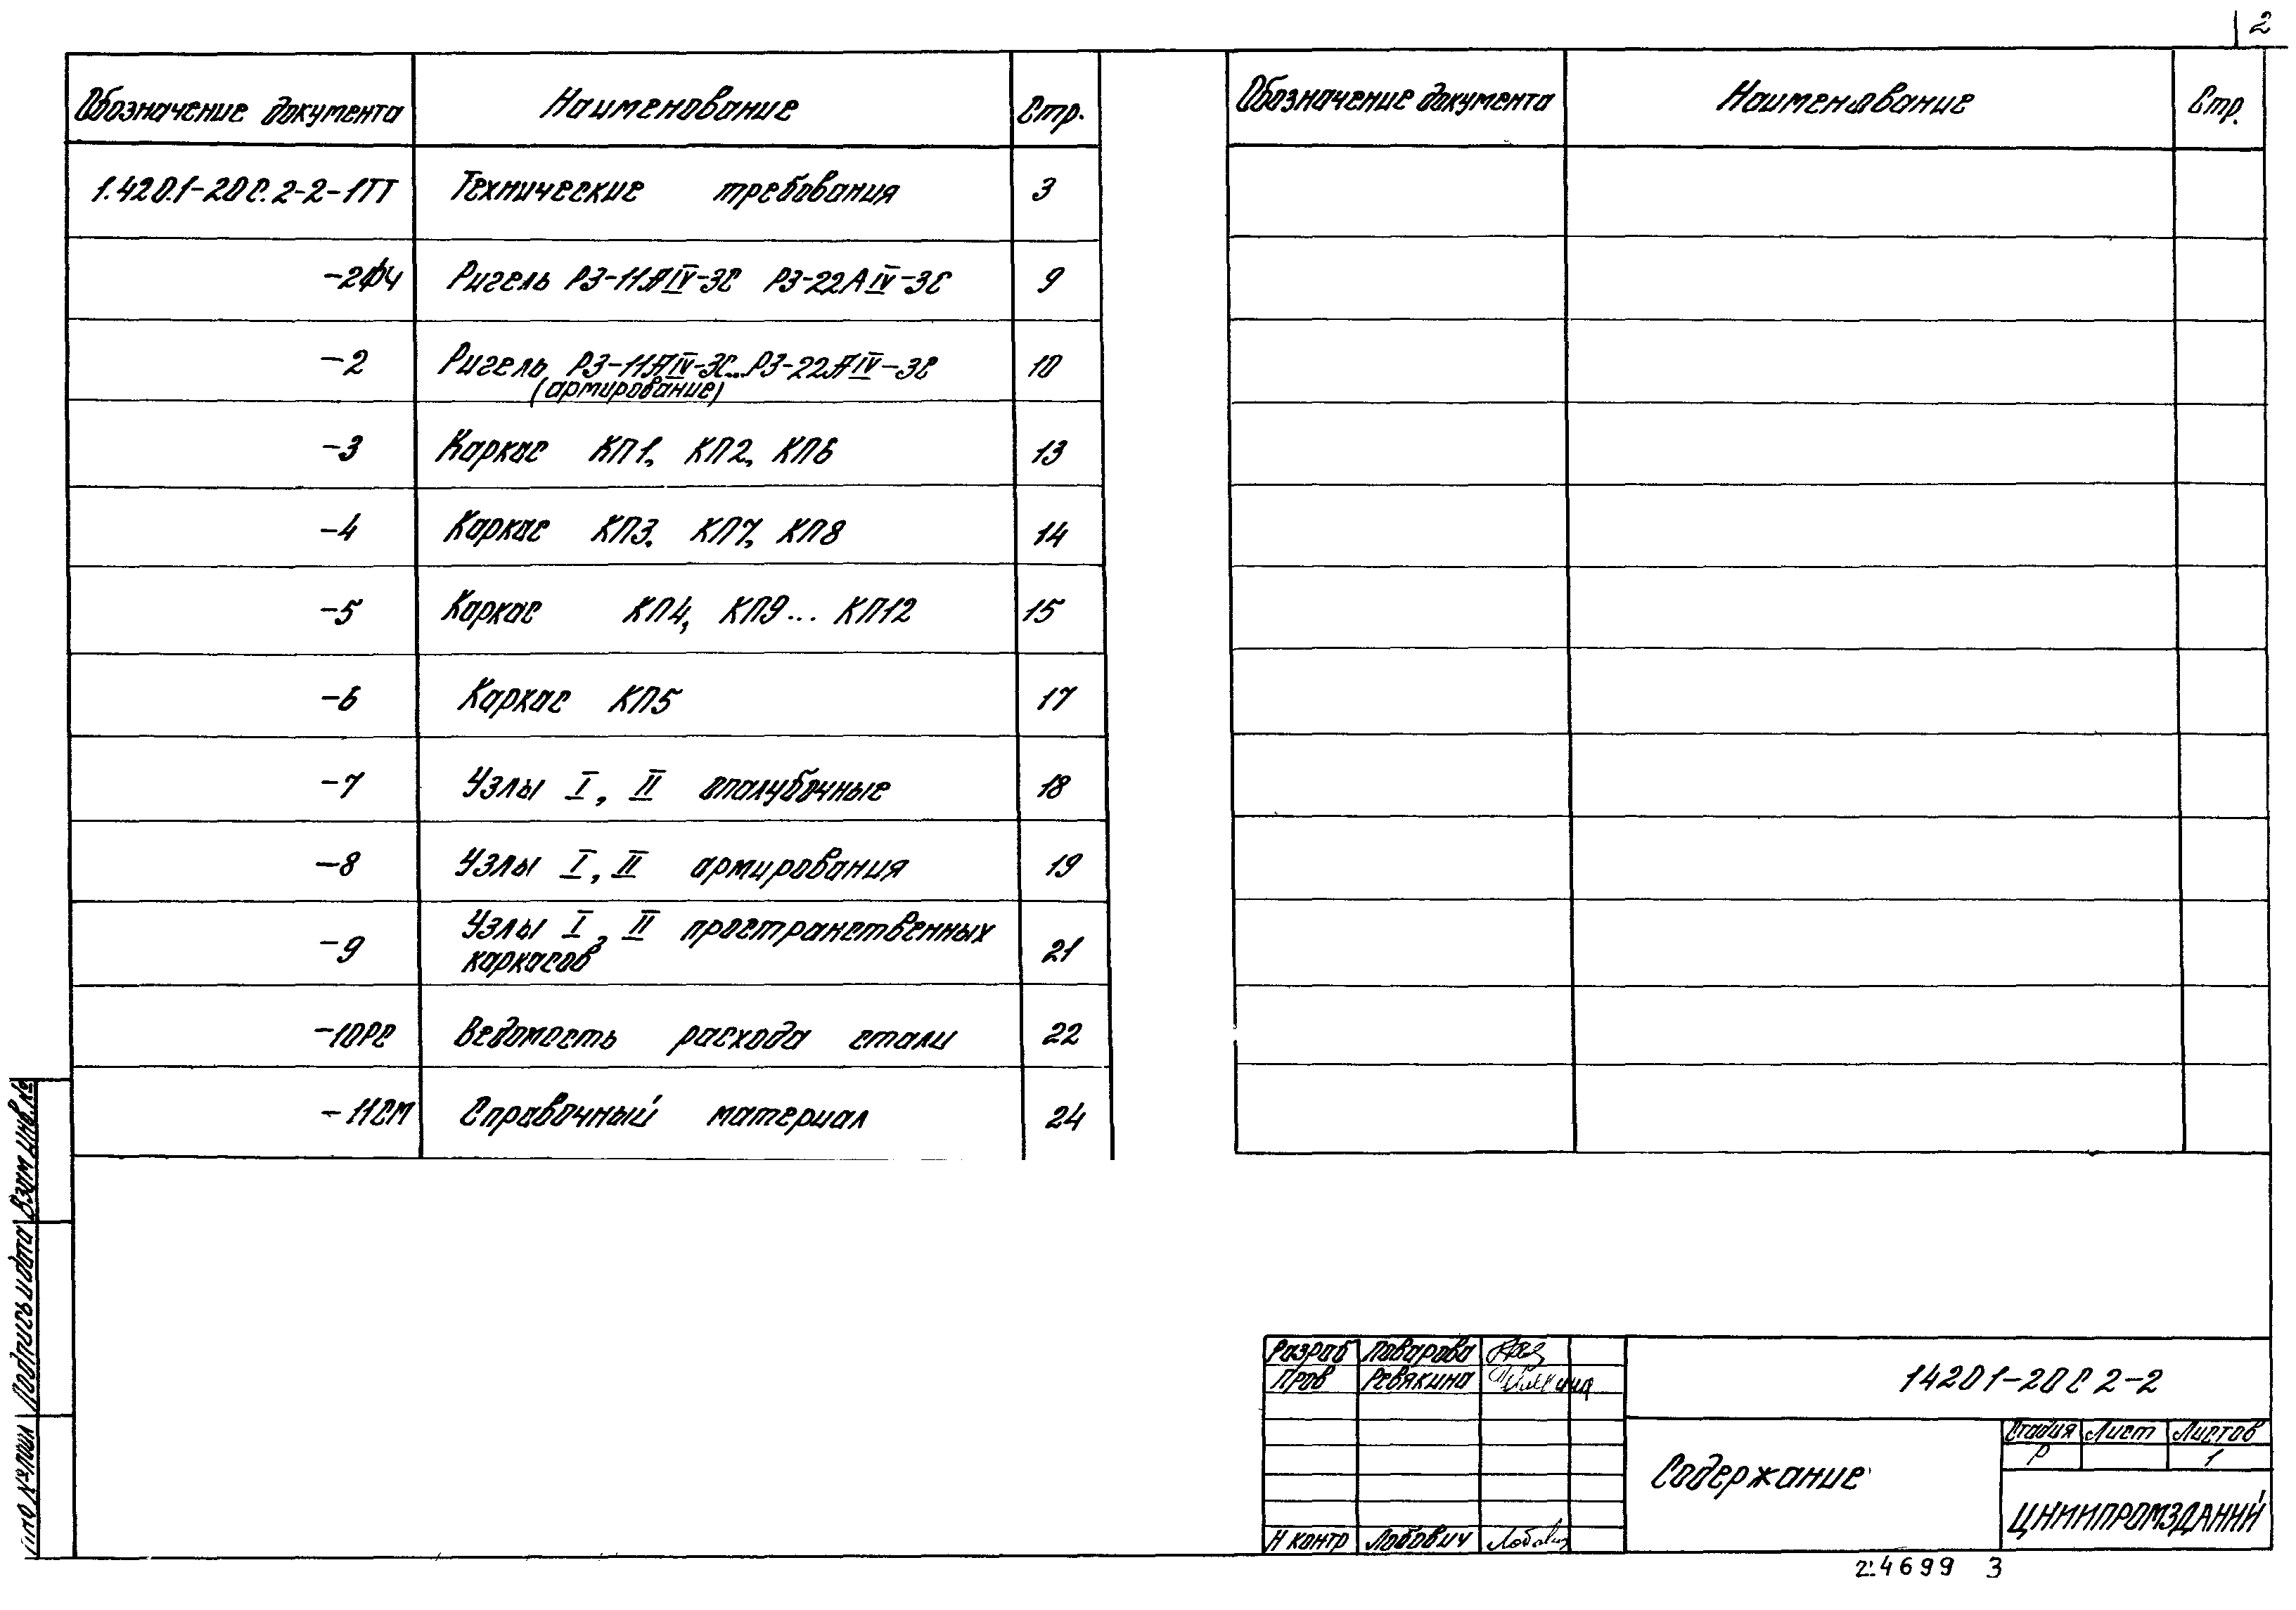 2
Обозначение документа Наименование Стр.
1.420.1-20С.2-2-1ТТ Технические требования 3
-2ФЧ Ригель Р3-11АIV-3С Р3-22АIV-3С 9
-2 Ригель Р3-11АIV-3С...Р3-22АIV-3С 10
(армирование)
-3 Каркас КП1, КП2, КП6 13
-4 Каркас КП3, КП7, КП8 14
-5 Каркас КП4, КП9... КП12 15
-6 Каркас КП5 17
-7 Узлы I, II опалубочные 18
-8 Узлы I, II армирования 19
-9 Узлы I, II пространственных 21
каркасов
-10РС Ведомость расхода стали 22
-11СМ Справочный материал 24
Обозначение документа Наименование Стр.
Взам инв.№
Подпись и дата
Инв № подл
Разраб Поварова
Пров Ревякина
Н контр Лобович Лобович
1 420 1-20 С 2-2
Содержание
Стадия Лист Листов
Р 1
ЦНИИПРОМЗДАНИЙ
24699 3